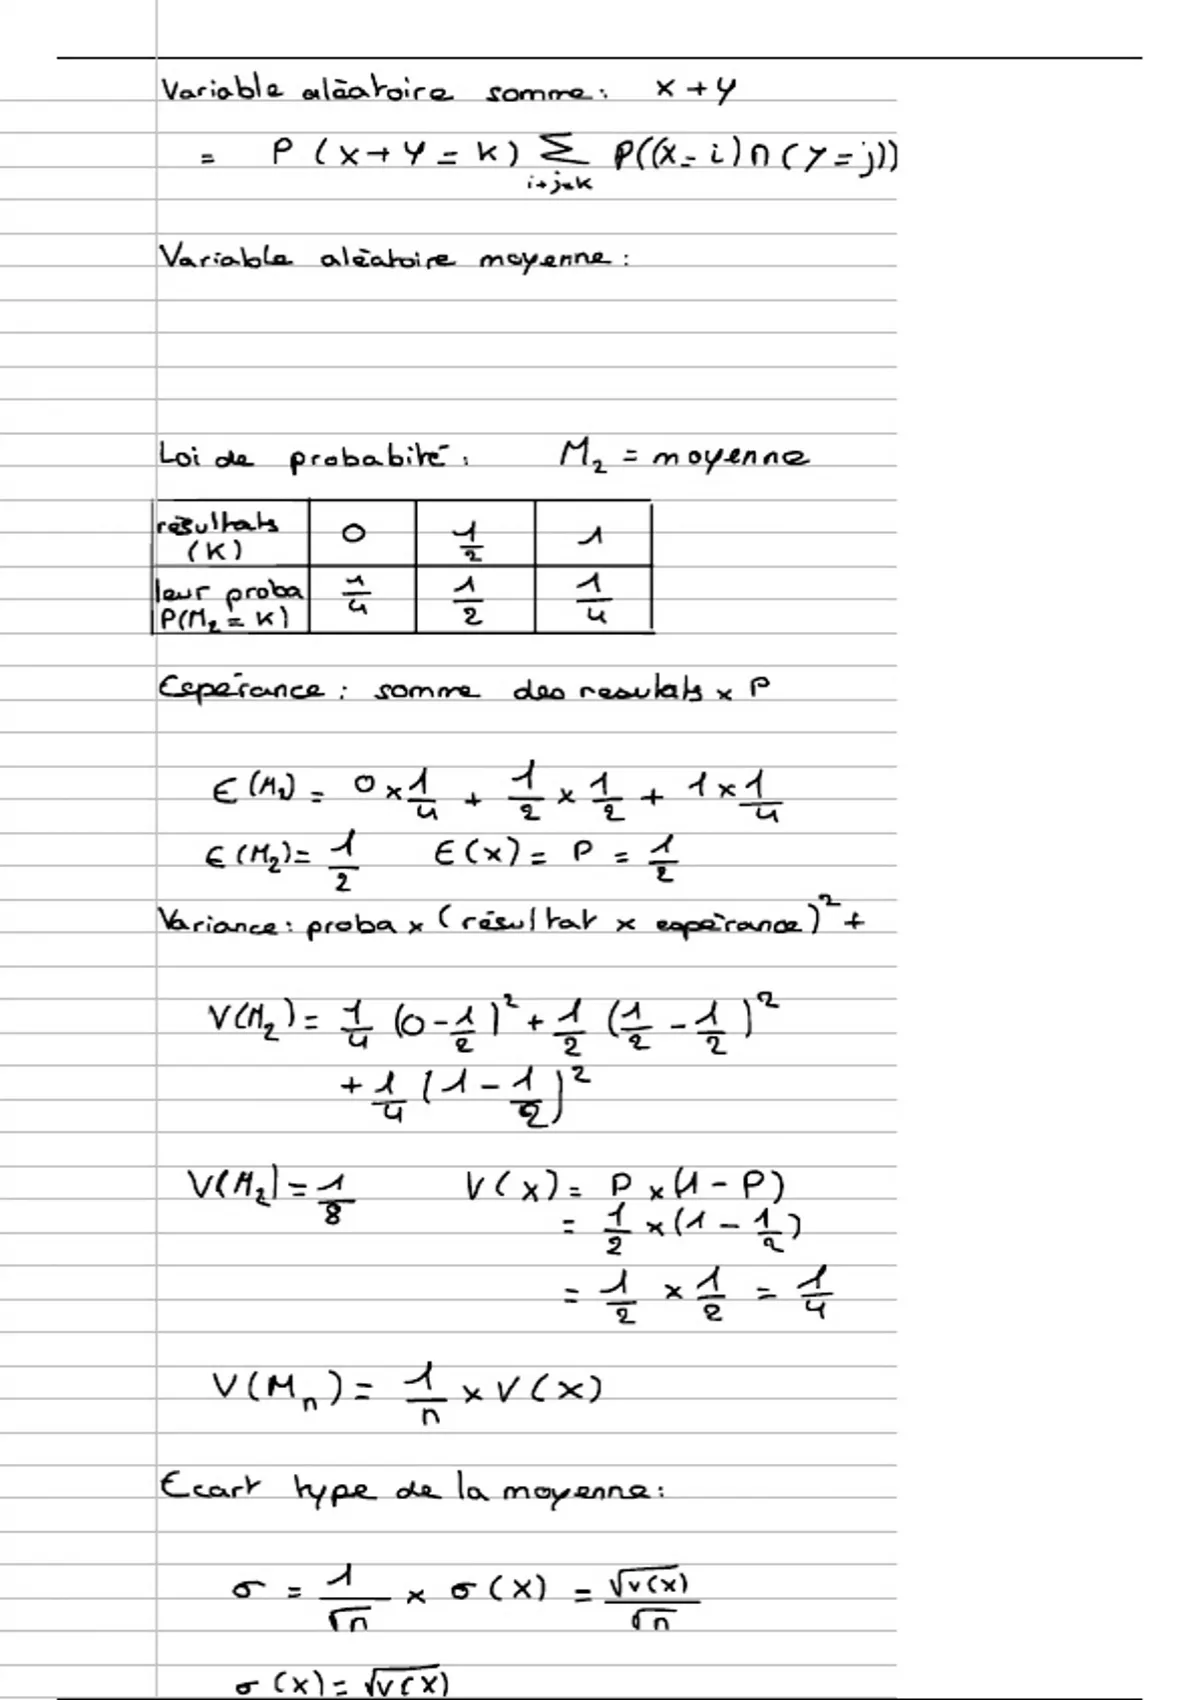 Variable aléatoire somme : X + Y
= P ( X + Y = K ) ∑ P((X = i) ∩ (Y = j))
i+j=K
Variable aléatoire moyenne :
Loi de probabité : M₂ = moyenne
résultats (K) | 0 | 1/2 | 1
leur proba P(M₂ = K) | 1/4 | 1/2 | 1/4
Espérance : somme des resultats x P
E (M₂) = 0 x 1/4 + 1/2 x 1/2 + 1 x 1/4
E (M₂) = 1/2 E(X) = P = 1/2
Variance : proba x (résultat x espérance)² +
V(M₂) = 1/4 (0 - 1/2)² + 1/2 (1/2 - 1/2)²
+ 1/4 (1 - 1/2)²
V(M₂) = 1/8 V(X) = P x (1 - P)
= 1/2 x (1 - 1/2)
= 1/2 x 1/2 = 1/4
V(Mₙ) = 1/n x V(X)
Ecart type de la moyenne :
σ = 1/√n x σ(X) = √V(X)/√n
σ(X) = √V(X)